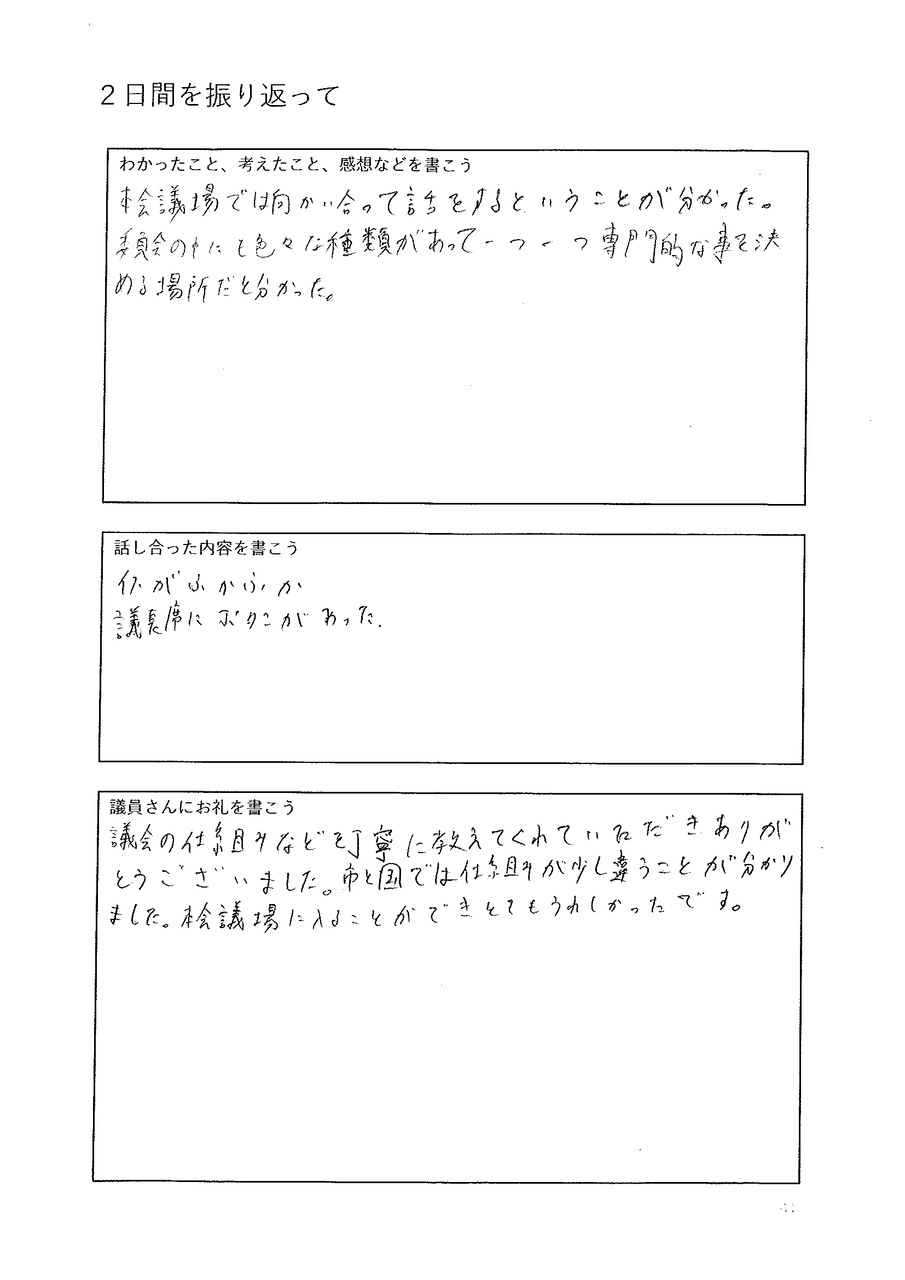 ２日間を振り返って
わかったこと、考えたこと、感想などを書こう
本会議場では向かい合って話をするということが分かった。
委員会の中にも色々な種類があって一つ一つ専門的な事を決
める場所だと分かった。
話し合った内容を書こう
イスがふかふか
議長席にボタンがあった.
議員さんにお礼を書こう
議会の仕組みなどを丁寧に教えてくれていただきありが
とうございました。市と国では仕組みが少し違うことが分かり
ました。本会議場に入ることができとてもうれしかったです。